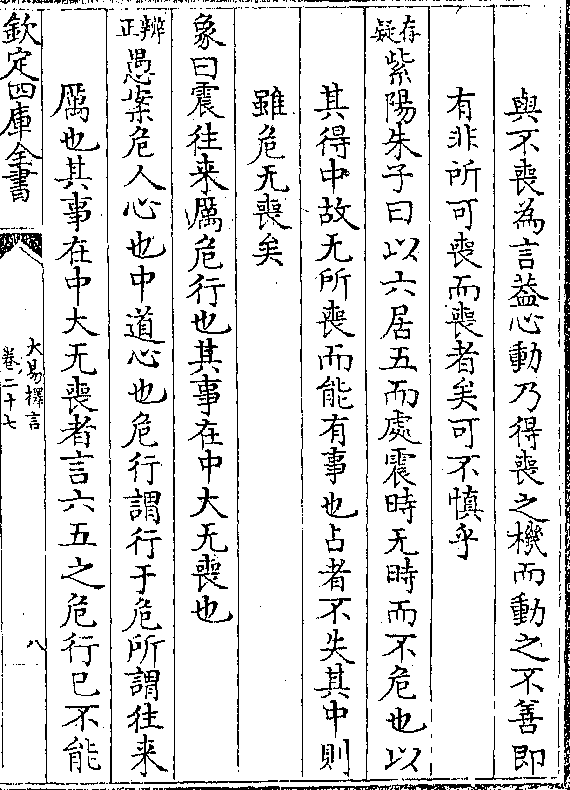 與不喪為言葢心動乃得喪之機而動之不善即
有非所可喪而喪者矣可不慎乎
存疑紫陽朱子曰以六居五而處震時无時而不危也以
其得中故无所喪而能有事也占者不失其中則
雖危无喪矣
象曰震往来厲危行也其事在中大无喪也
辨正愚案危人心也中道心也危行謂行于危所謂往来
厲也其事在中大无喪者言六五之危行已不能
欽定四庫全書
大易擇言
卷二十七
八